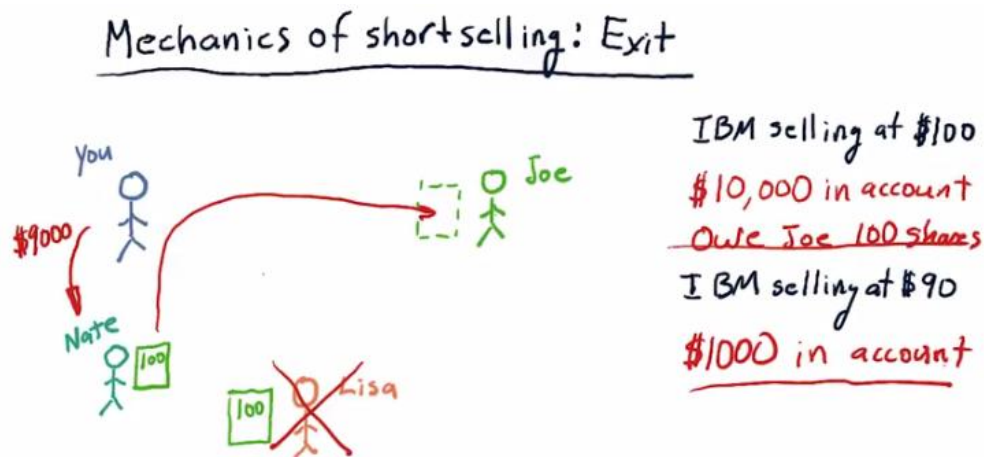 Mechanics of short selling: Exit
You
Joe
$9000
Nate
100
100
Lisa
IBM selling at $100
$10,000 in account
Owe Joe 100 shares
IBM selling at $90
$1000 in account